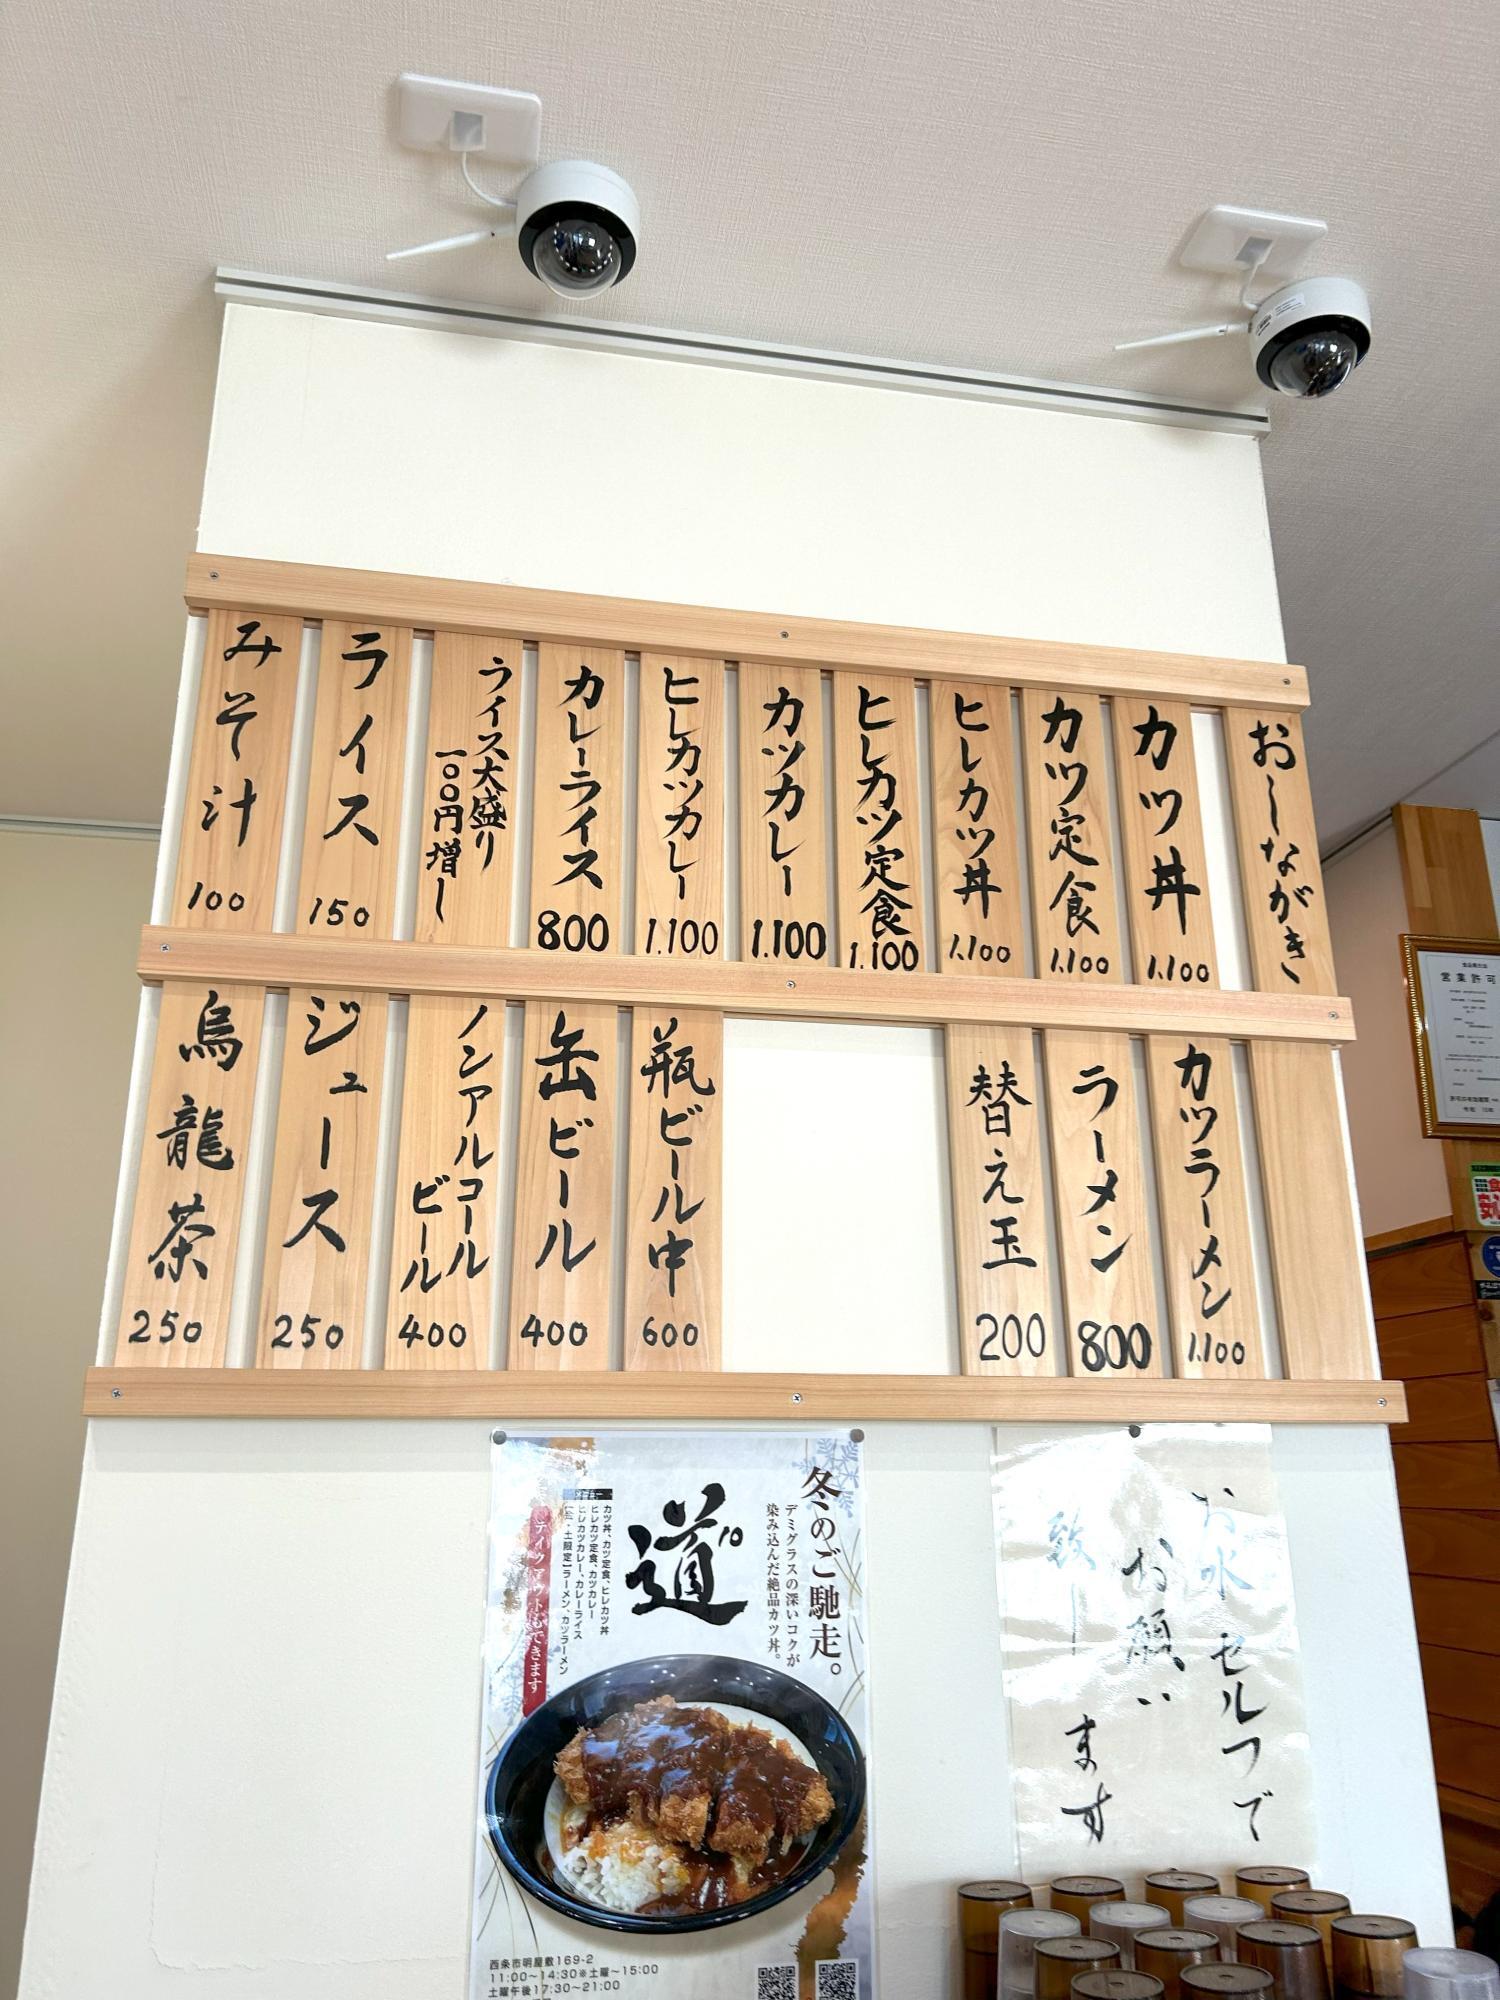 おしながき
カツ丼
1.100
カツ定食
1.100
ヒレカツ丼
1.100
ヒレカツ定食
1.100
カツカレー
1.100
ヒレカツカレー
1.100
カレーライス
800
ライス大盛り
一〇〇円増し
ライス
150
みそ汁
100
カツラーメン
1.100
ラーメン
800
替え玉
200
瓶ビール中
600
缶ビール
400
ノンアルコール
ビール
400
ジュース
250
烏龍茶
250
冬のご馳走。
デミグラスの深いコクが
染み込んだ絶品カツ丼。
道
カツ丼、カツ定食、ヒレカツ丼
ヒレカツ定食、カツカレー
ヒレカツカレー、カレーライス
ラーメン、カツラーメン
テイクアウトもできます
西条市明屋敷169-2
11:00〜14:30※土曜〜15:00
土曜午後17:30〜21:00
お水セルフで
お願い
致します
営業許可